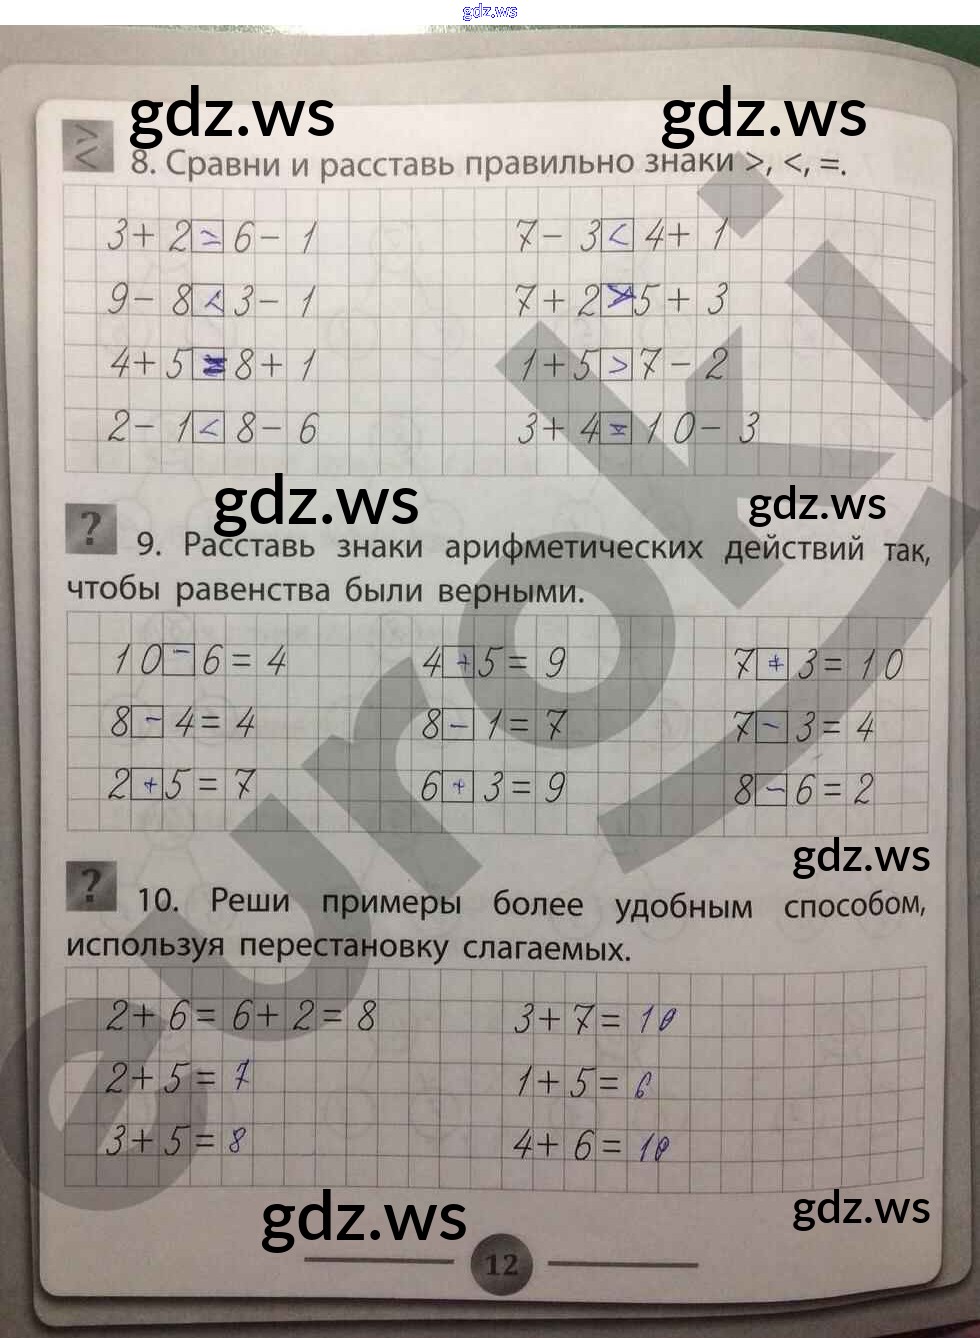 gdz.ws
gdz.ws gdz.ws
8. Сравни и расставь правильно знаки >, <, =.
3 + 2 = 6 - 1 7 - 3 < 4 + 1
9 - 8 < 3 - 1 7 + 2 > 5 + 3
4 + 5 = 8 + 1 1 + 5 > 7 - 2
2 - 1 < 8 - 6 3 + 4 = 10 - 3
gdz.ws gdz.ws
? 9. Расставь знаки арифметических действий так,
чтобы равенства были верными.
10 - 6 = 4 4 + 5 = 9 7 + 3 = 10
8 - 4 = 4 8 - 1 = 7 7 - 3 = 4
2 + 5 = 7 6 + 3 = 9 8 - 6 = 2
gdz.ws
? 10. Реши примеры более удобным способом,
используя перестановку слагаемых.
2 + 6 = 6 + 2 = 8 3 + 7 = 10
2 + 5 = 7 1 + 5 = 6
3 + 5 = 8 4 + 6 = 10
gdz.ws gdz.ws
12
euroki